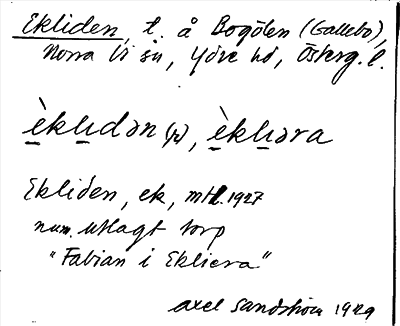 Ekliden, t. å Bogölen (Gallebo),
Norra Vi sn, Ydre hd, Österg. l.
èklıdən (n), èklıəra
Ekliden, ek, mtl. 1927
num. utlagt torp
"Fabian i Ekliera"
Axel Sandström 1929